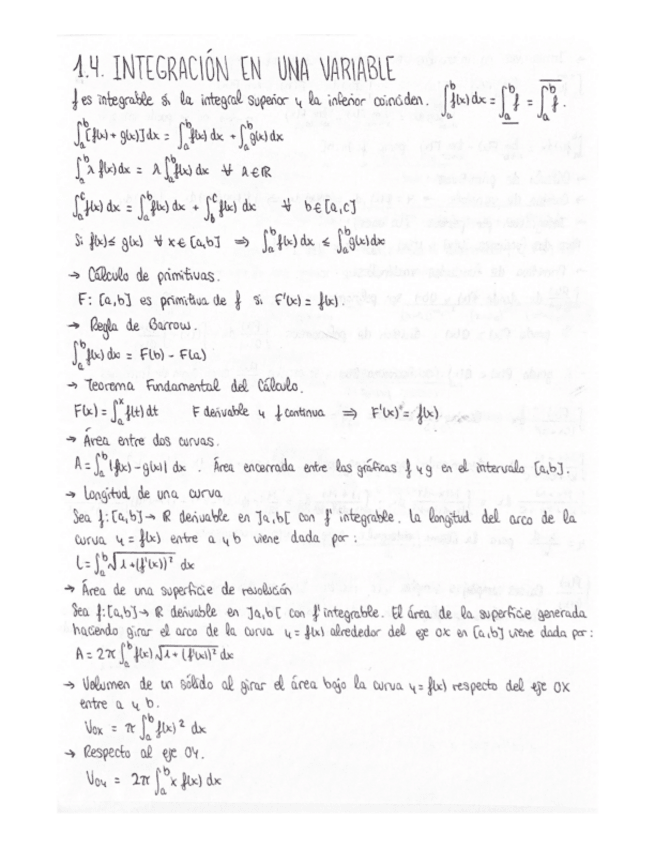 1.4. INTEGRACIÓN EN UNA VARIABLE
f es integrable si la integral superior y la inferior coinciden. ∫_a^b f(x) dx = \underline{∫_a^b} f = \overline{∫_a^b f}.
∫_a^b [f(x) + g(x)] dx = ∫_a^b f(x) dx + ∫_a^b g(x) dx
∫_a^b λ f(x) dx = λ ∫_a^b f(x) dx ∀ λ∈ℝ
∫_a^c f(x) dx = ∫_a^b f(x) dx + ∫_b^c f(x) dx ∀ b∈[a,c]
Si f(x) ≤ g(x) ∀ x∈[a,b] ⇒ ∫_a^b f(x) dx ≤ ∫_a^b g(x) dx
→ Cálculo de primitivas.
F: [a,b] es primitiva de f si F'(x) = f(x).
→ Regla de Barrow.
∫_a^b f(x) dx = F(b) - F(a)
→ Teorema Fundamental del Cálculo.
F(x) = ∫_a^x f(t) dt F derivable y f continua ⇒ F'(x) = f(x)
→ Área entre dos curvas.
A = ∫_a^b |f(x) - g(x)| dx . Área encerrada entre las gráficas f y g en el intervalo [a,b].
→ Longitud de una curva
Sea f: [a,b] → ℝ derivable en ]a,b[ con f' integrable. La longitud del arco de la
curva y = f(x) entre a y b viene dada por:
L = ∫_a^b √(1 + (f'(x))²) dx
→ Área de una superficie de resolución
Sea f: [a,b] → ℝ derivable en ]a,b[ con f' integrable. El área de la superficie generada
haciendo girar el arco de la curva y = f(x) alrededor del eje OX en [a,b] viene dada por:
A = 2π ∫_a^b f(x) √(1 + (f'(x))²) dx
→ Volumen de un sólido al girar el área bajo la curva y = f(x) respecto del eje OX
entre a y b.
V_OX = π ∫_a^b f(x)² dx
→ Respecto al eje OY.
V_OY = 2π ∫_a^b x f(x) dx